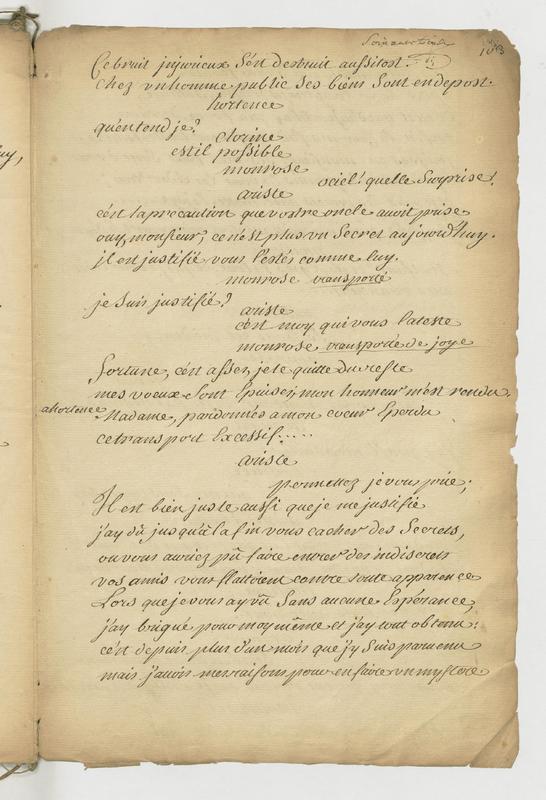 103
Ce bruit injurieux s'est destruit aussitost.
Chez un homme public ses biens sont en depost.
hortence
qu'entend je?
clorine
est il possible
monrose
o ciel! quelle surprise!
ariste
c'est la precaution que vostre oncle avoit prise
ouy, monsieur, ce n'est plus un secret aujourd'huy.
il est justifié vous l'estes comme luy.
monrose transporté
je suis justifié?
ariste
c'est moy qui vous l'ateste
monrose transporté de joye
fortune, c'est assez, je te quitte du reste
mes voeux sont Epuisez, mon honneur m'est rendu.
a hortence
Madame, pardonnés a mon coeur Eperdu
ce transport Excessif....
ariste
permettez je vous prie;
Il est bien juste aussi que je me justifie
j'ay dû jusqu'à la fin vous cacher des secrets,
ou vous auriez pû faire entrer des indiscrets
vos amis vous flattoient contre toute apparence
Lors que je vous ay vû sans aucune Espérance,
j'ay brigué pour moy même et j'ay tout obtenu:
c'est depuis plus d'un mois que j'y suis parvenu
mais j'avois mes raisons pour en faire un mystere